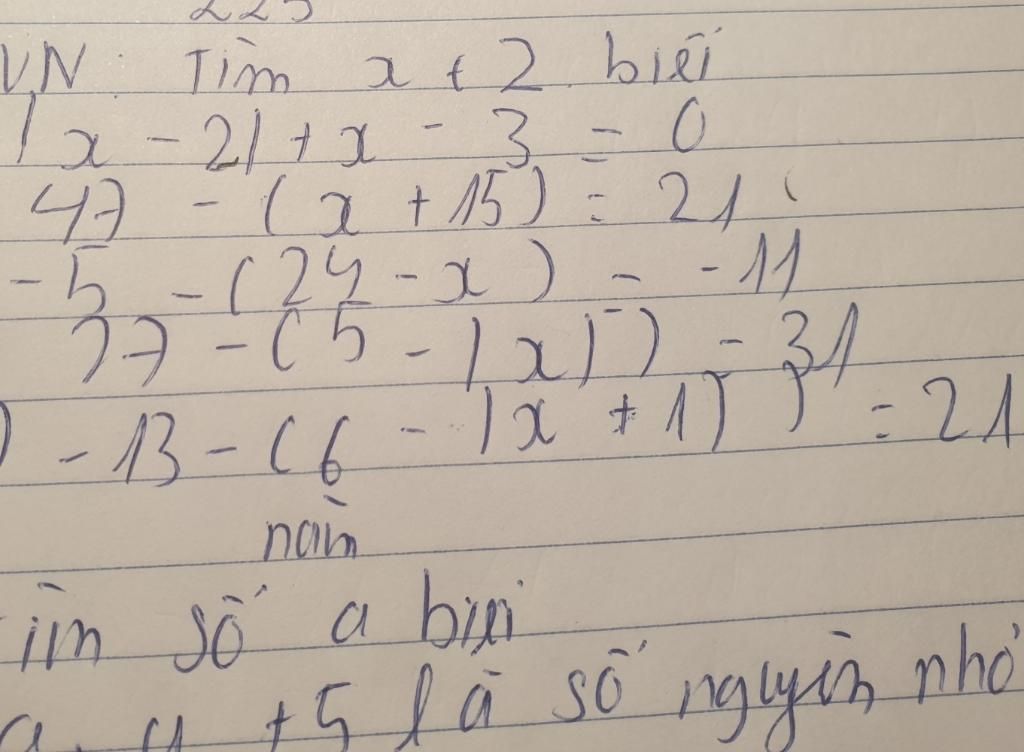 225
VN: Tìm x + 2 biết
|x - 2| + x - 3 = 0
47 - (x + 15) = 21
-5 - (24 - x) = -11
77 - (5 - |x|) = 31
) -13 - (6 - |x + 1|) = 21
ìm số a biết
a + 5 là số nguyên nhỏ